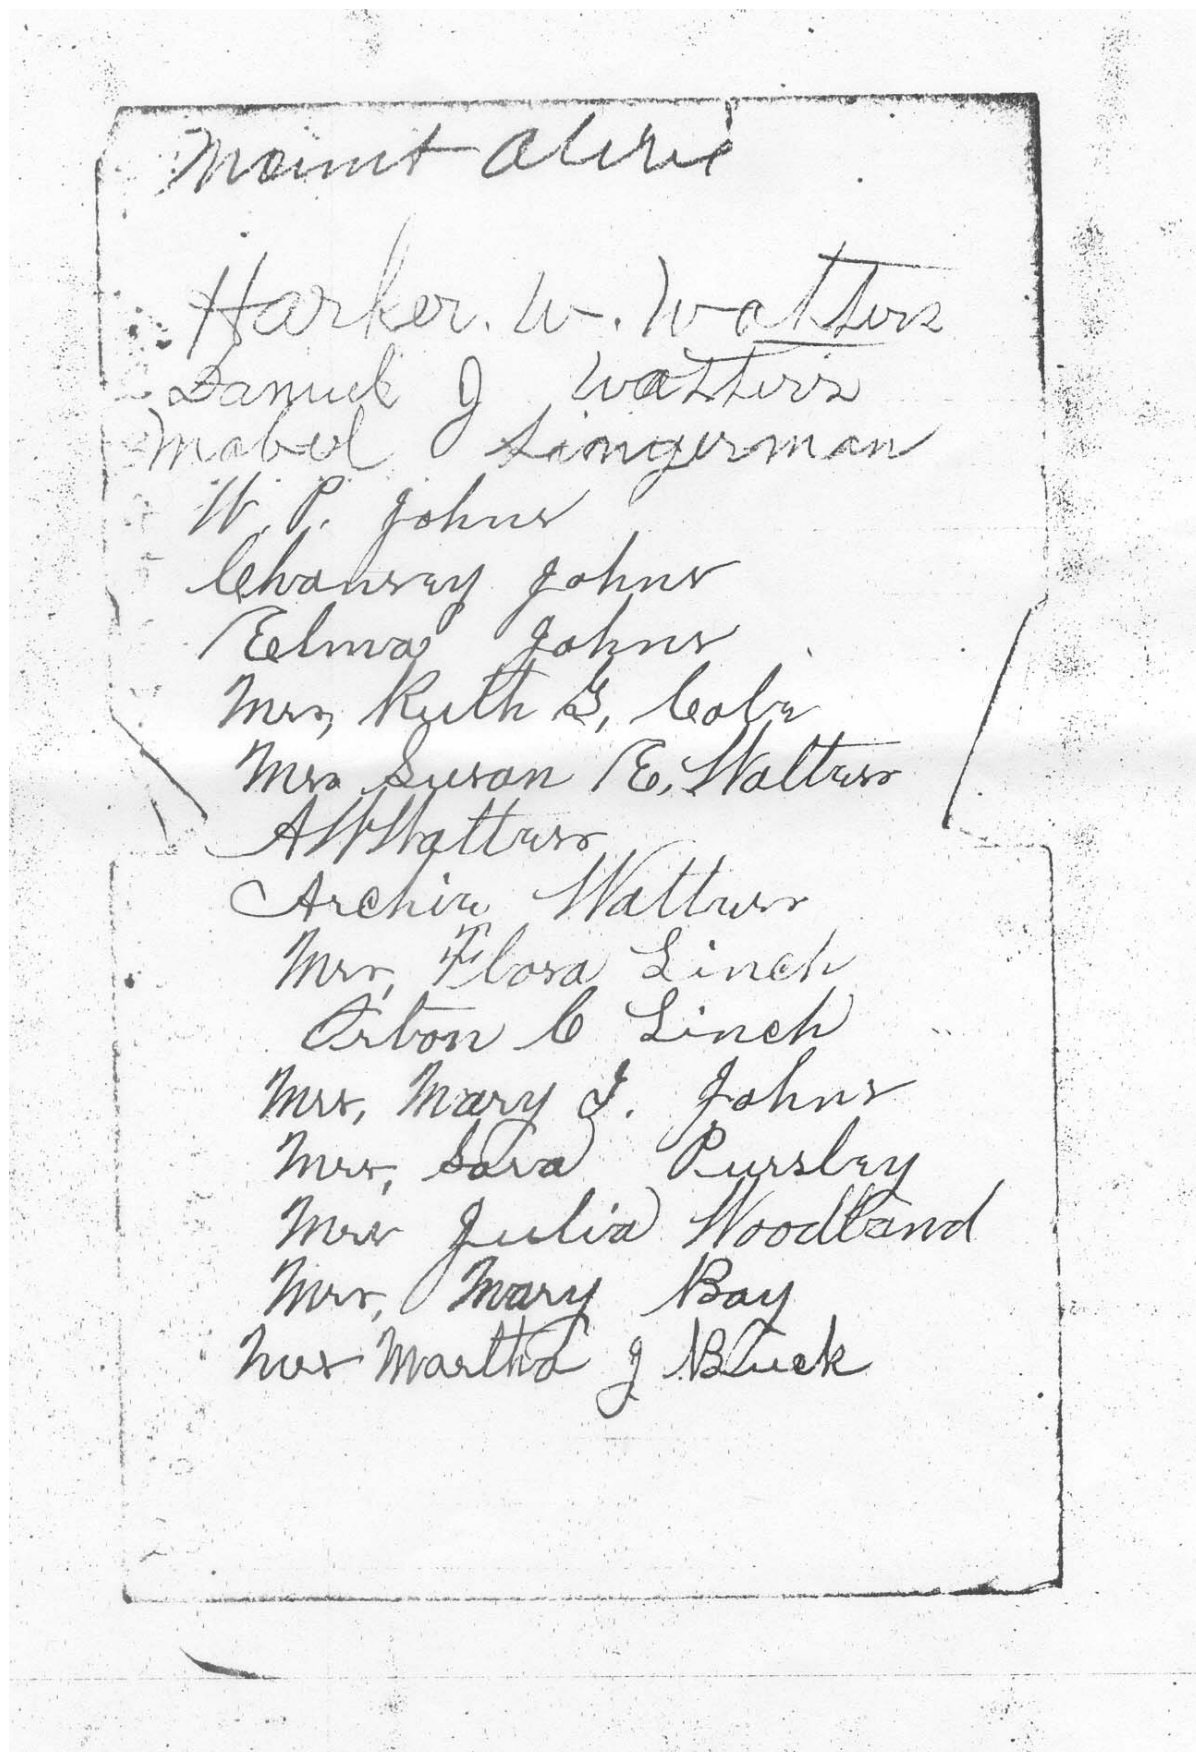 Mount Olive
Harker. W. Watters
Samuel J Watters
Mabel Slingerman
W. P. Johns
Chansey Johns
Elma Johns
Mrs, Ruth G, Cole
Mrs Susan E. Watters
A W Watters
Archie Watters
Mrs, Flora Linch
Orbon C Linch
Mrs, Mary J. Johns
Mrs, Sara Pursley
Mrs Julia Woodland
Mrs, Mary Bay
Mrs Martha J Buck